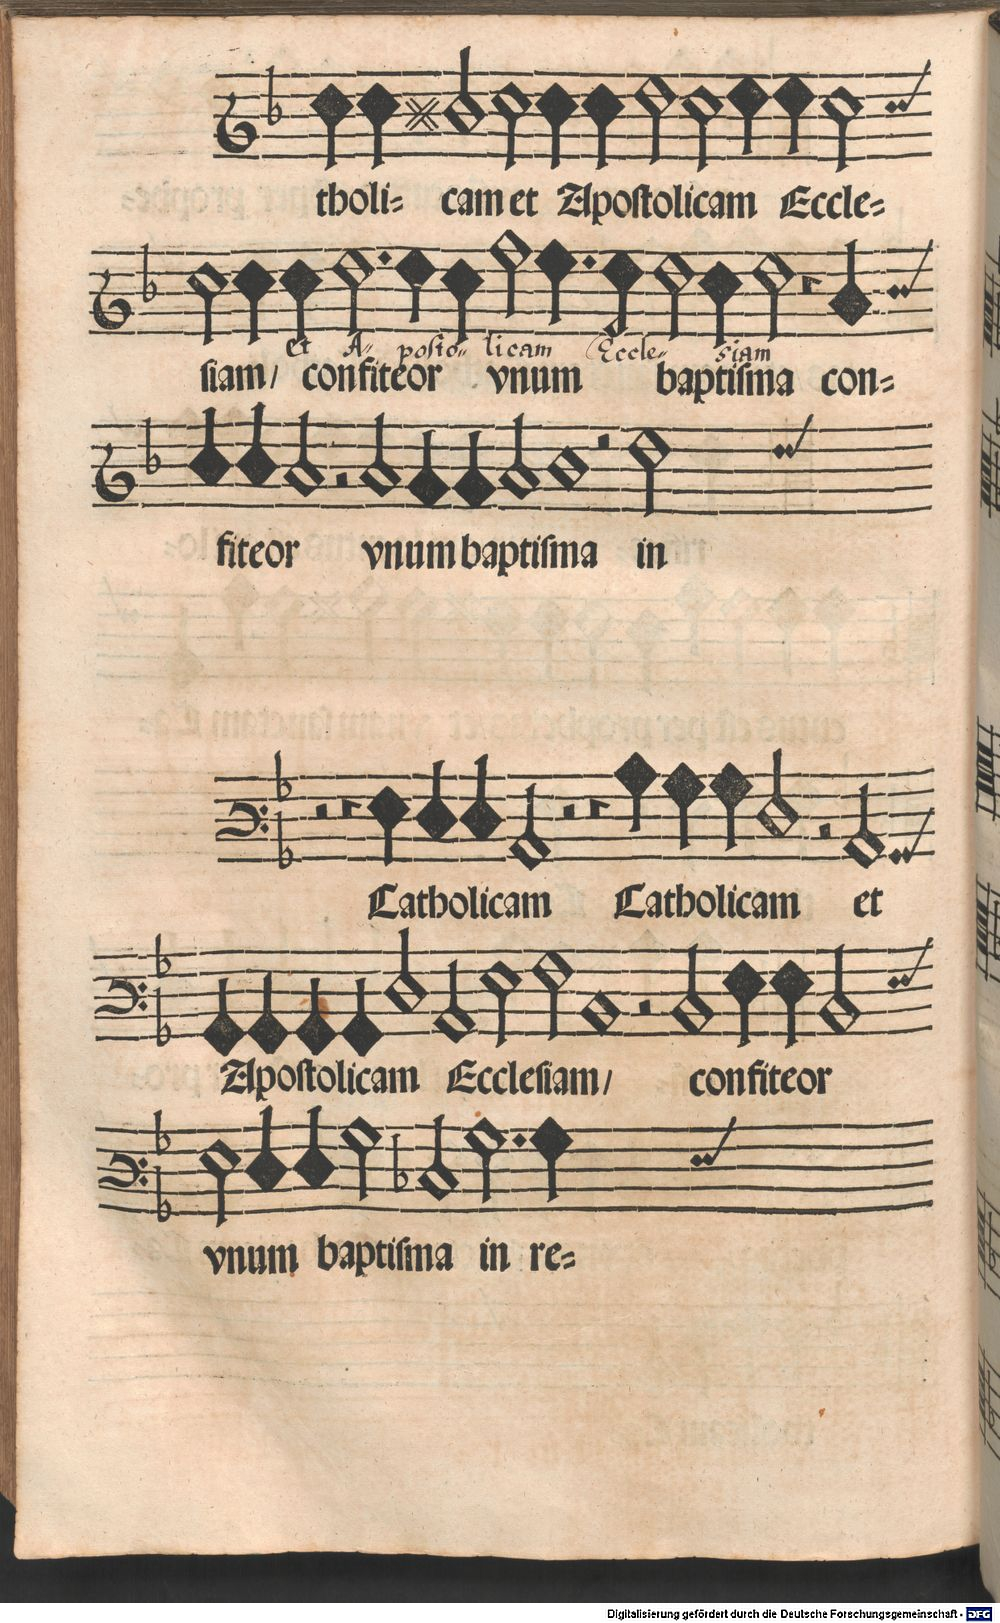 tholi= cam et Apoſtolicam Eccle=
et A- posto- licam Eccle- siam
ſiam/ confiteor vnum baptiſma con=
fiteor vnum baptiſma in
Catholicam Catholicam et
Apoſtolicam Eccleſiam/ confiteor
vnum baptiſma in re=
Digitalisierung gefördert durch die Deutsche Forschungsgemeinschaft - DFG